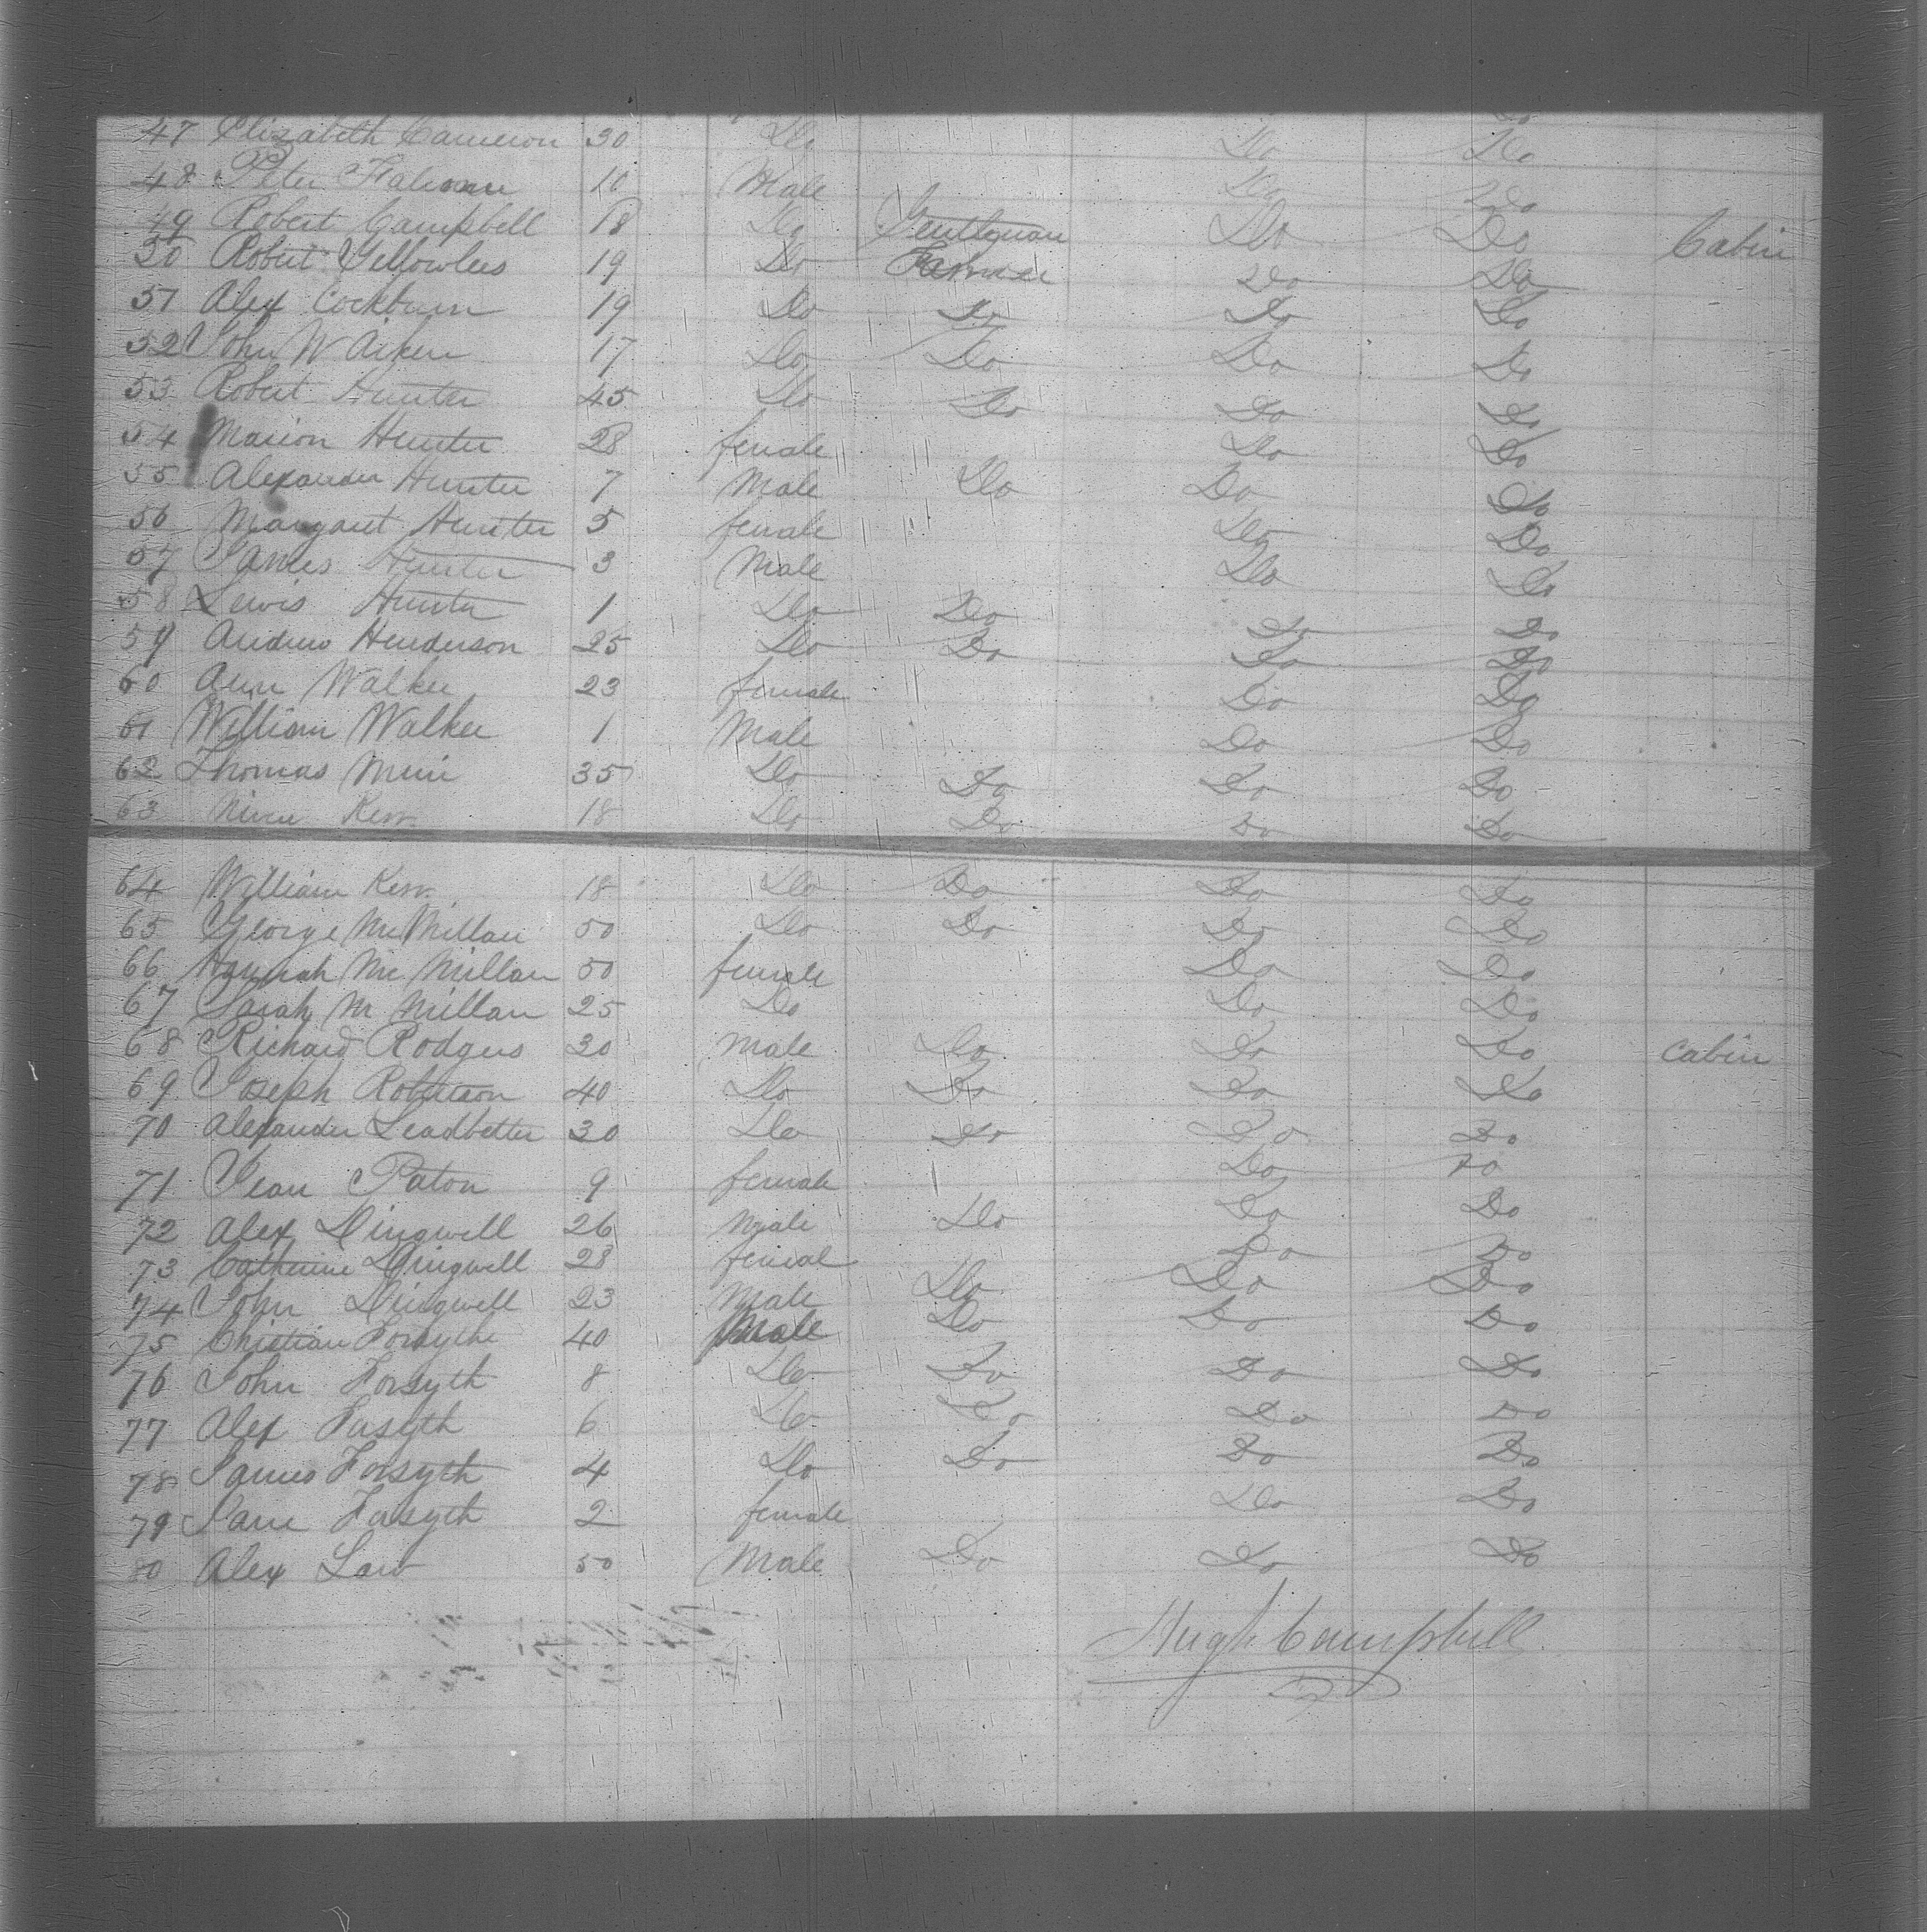 47 Elizabeth Cameron 30 Do Do Do
48 Peter 10 Male Do Do
49 Robert Campbell 18 Do Gentleman Do Do Cabin
50 Robert Yellowlees 19 Do Farmer Do Do
51 Alex Cockburn 19 Do Do Do Do
52 John W Aiken 17 Do Do Do Do
53 Robert Hunter 45 Do Do Do Do
54 Marion Hunter 28 female Do Do
55 Alexander Hunter 7 Male Do Do Do
56 Margaret Hunter 5 female Do Do
57 James Hunter 3 Male Do Do
58 Lewis Hunter 1 Do Do Do Do
59 Andrew Henderson 25 Do Do Do Do
60 Ann Walker 23 female Do Do
61 William Walker 1 Male Do Do
62 Thomas Muir 35 Do Do Do Do
63 Niven Kerr 18 Do Do Do Do
64 William Kerr 18 Do Do Do Do
65 George McMillan 50 Do Do Do Do
66 Hannah Mc Millan 50 female Do Do
67 Sarah M Millan 25 Do Do Do
68 Richard Rodgers 30 Male Do Do Do Cabin
69 Joseph Robertson 40 Do Do Do Do
70 Alexander Leadbetter 30 Do Do Do Do
71 Jean Paton 9 female Do Do
72 Alex Dingwell 26 Male Do Do Do
73 Catherine Dingwell 28 femal Do Do
74 John Dingwell 23 Male Do Do Do
75 Christian Forsythe 40 Male Do Do Do
76 John Forsyth 8 Do Do Do Do
77 Alex Forsyth 6 Do Do Do Do
78 James Forsyth 4 Do Do Do Do
79 Jane Forsyth 2 female Do Do
80 Alex Law 50 Male Do Do Do
Hugh Campbell